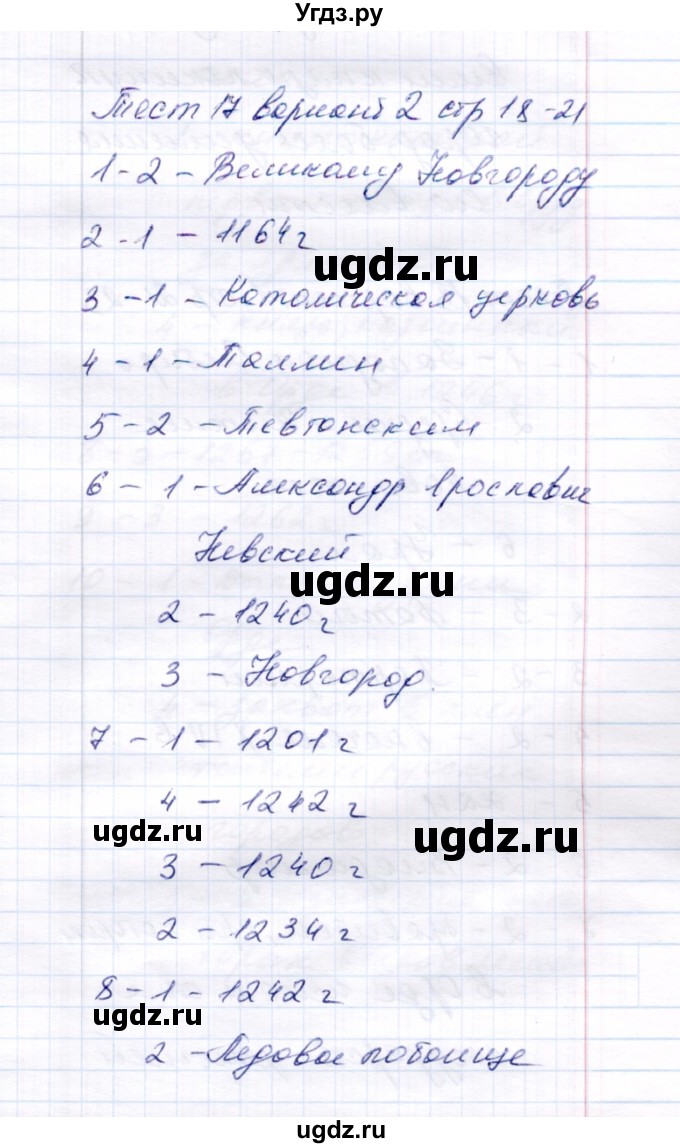 Угдз.ру
Тест 17 вариант 2 стр 18-21
1-2 - Великому Новгороду
2-1 - 1164 г
ugdz.ru
3-1 - Католическая церковь
4-1 - Таллин
5-2 - Тевтонским
6-1 - Александр Ярославич
Невский
ugdz.ru
2 - 1240 г
3 - Новгород.
7-1 - 1201 г
4 - 1242 г
ugdz.ru
ugdz.ru
3 - 1240 г
2 - 1234 г
8-1 - 1242 г
ugdz.ru
2 - Ледовое побоище
ugdz.ru